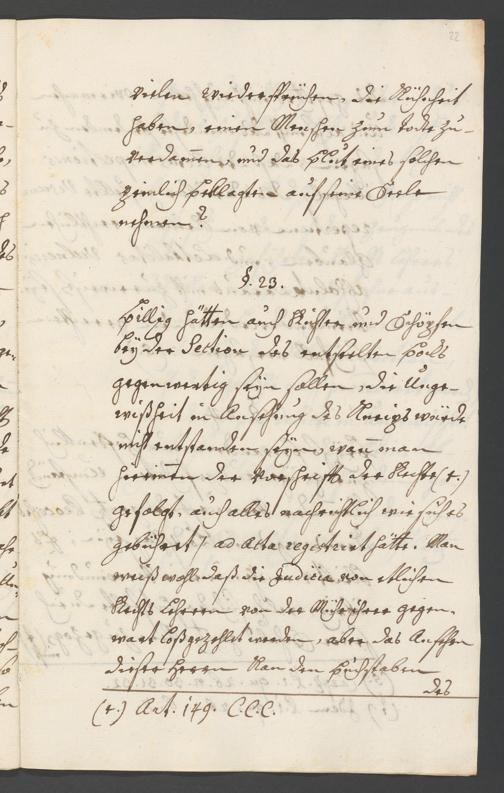 22
vielen wiedersprüchen, die Kühnheit
haben, einen Menschen zum tode zu-
verdammen, und das Blut eines solchen
peinlich Beklagten auf seine Seele
nehmen?
§. 23.
Billig hätten auch Richter und Schöpfen
bey der Section des entseelten
gegenwertig seyn sollen, die Unge-
wißheit in Ansehung des würde
nicht entstanden seyn, wann man
hierinen der Vorschrift der Rechte (r.)
gefolgt, auch alles nachrichtlich wie sich es
gebühret / ad Acta registrirt hätte. Man
weiß wohl, daß die Judicia von etlichen
Rechts Lehrern von der gegen-
wart loßgezehlt werden, aber das Ansehen
dieser Herrn kan den Buchstaben
des
(r.) Art. 149. C.C.C.